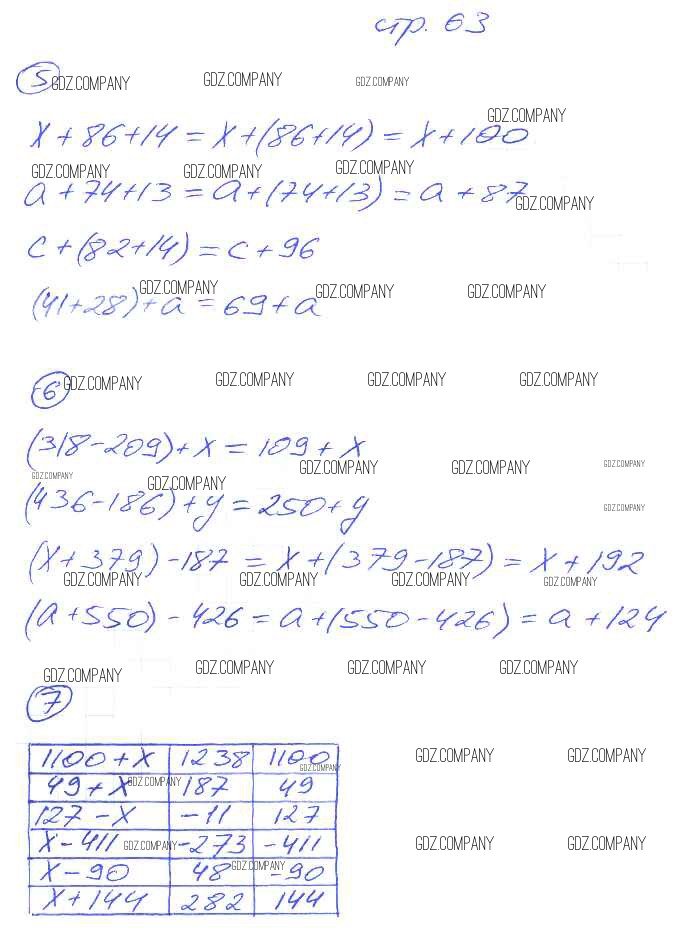 стр. 63
5 GDZ.COMPANY GDZ.COMPANY GDZ.COMPANY
GDZ.COMPANY
x + 86 + 14 = x + (86 + 14) = x + 100
GDZ.COMPANY GDZ.COMPANY GDZ.COMPANY
a + 74 + 13 = a + (74 + 13) = a + 87
GDZ.COMPANY
c + (82 + 14) = c + 96
GDZ.COMPANY GDZ.COMPANY GDZ.COMPANY
(41 + 28) + a = 69 + a
6 GDZ.COMPANY GDZ.COMPANY GDZ.COMPANY GDZ.COMPANY
(318 - 209) + x = 109 + x
GDZ.COMPANY GDZ.COMPANY GDZ.COMPANY
GDZ.COMPANY GDZ.COMPANY
(436 - 186) + y = 250 + y
GDZ.COMPANY
(x + 379) - 187 = x + (379 - 187) = x + 192
GDZ.COMPANY GDZ.COMPANY GDZ.COMPANY GDZ.COMPANY
(a + 550) - 426 = a + (550 - 426) = a + 124
GDZ.COMPANY GDZ.COMPANY GDZ.COMPANY GDZ.COMPANY
7
1100 + x 1238 1100
GDZ.COMPANY GDZ.COMPANY GDZ.COMPANY
49 + x GDZ.COMPANY 187 49
127 - x -11 127
x - 411 GDZ.COMPANY -273 -411 GDZ.COMPANY GDZ.COMPANY
x - 90 48 GDZ.COMPANY -90
x + 144 282 144